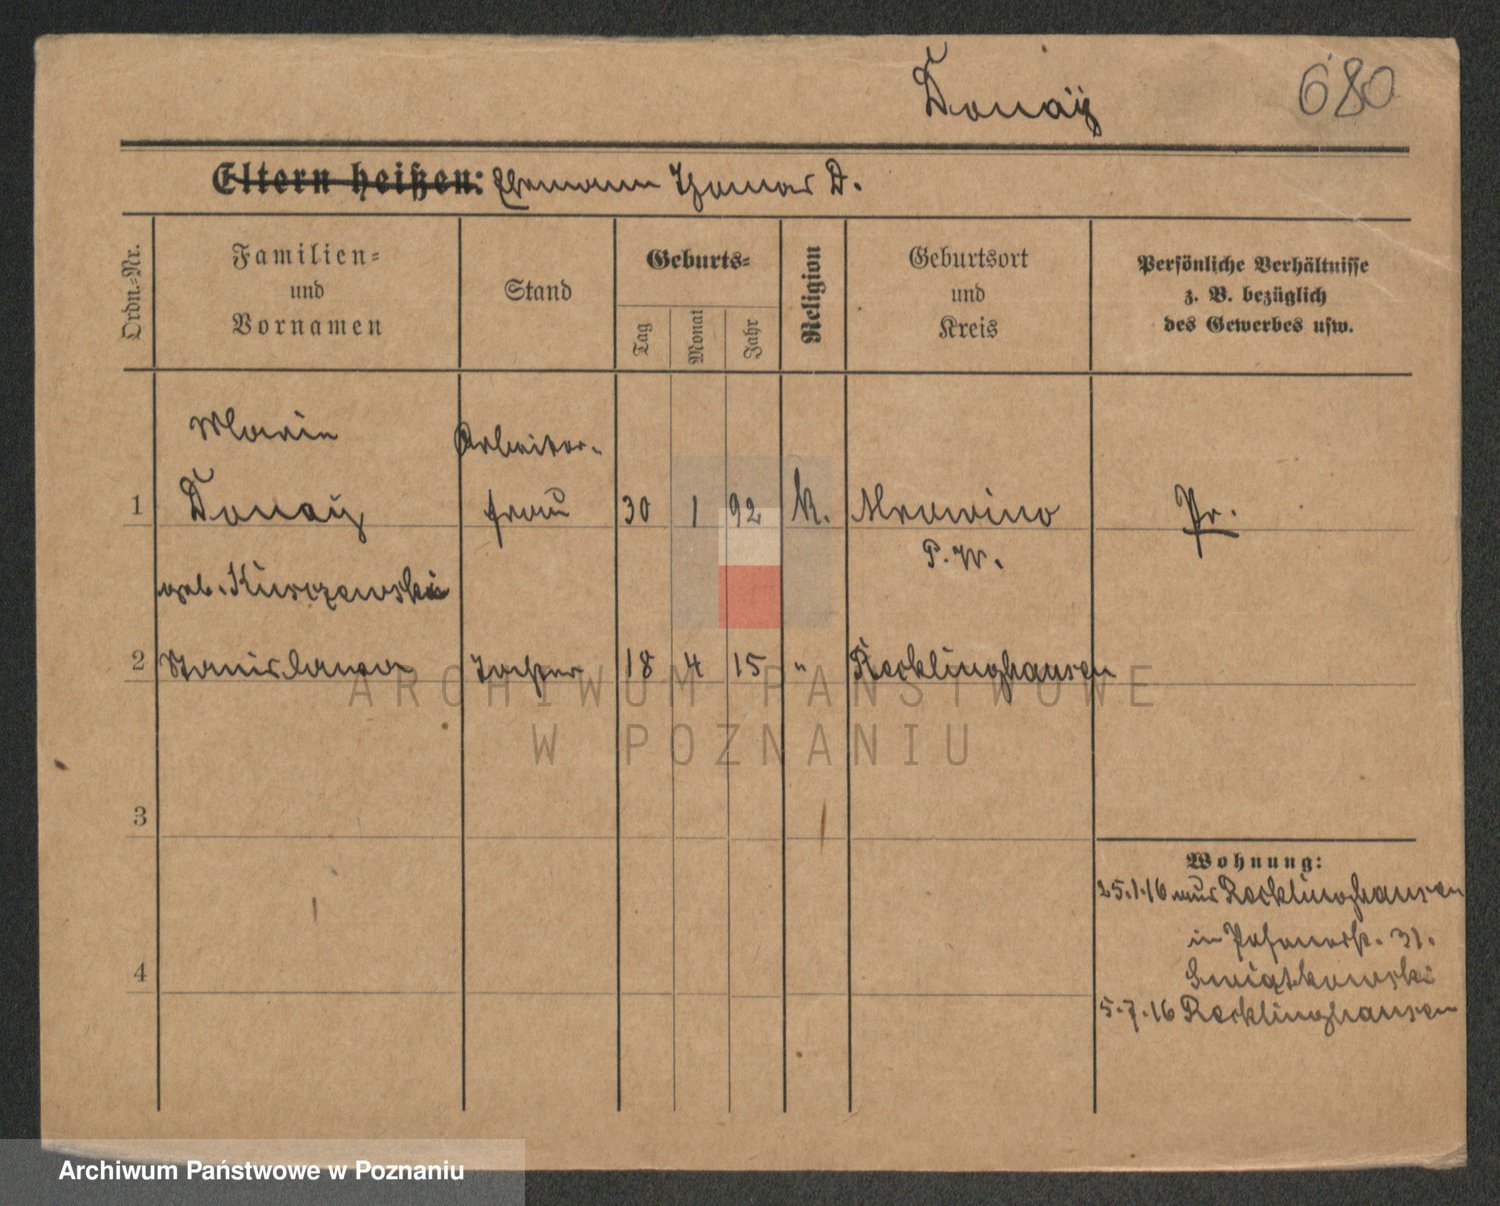 Donaÿ 680
Eltern heißen: Ehemann Thomas D.
Ordn.-Nr.
Familien-
und
Vornamen
Stand
Geburts-
Tag
Monat
Jahr
Religion
Geburtsort
und
Kreis
Persönliche Verhältnisse
z. B. bezüglich
des Gewerbes usw.
Marie Arbeiter-
1 Donaÿ frau 30 1 92 k. Mrowino Pr.
P.W.
geb. Kurczewski
2 Stanislawa Tochter 18 4 15 " Recklinghausen
ARCHIWUM PAŃSTWOWE
W POZNANIU
3
Wohnung:
25.1.16 aus Recklinghausen
in Posenerstr. 31.
Swiątkowski
4
5.7.16 Recklinghausen
Archiwum Państwowe w Poznaniu